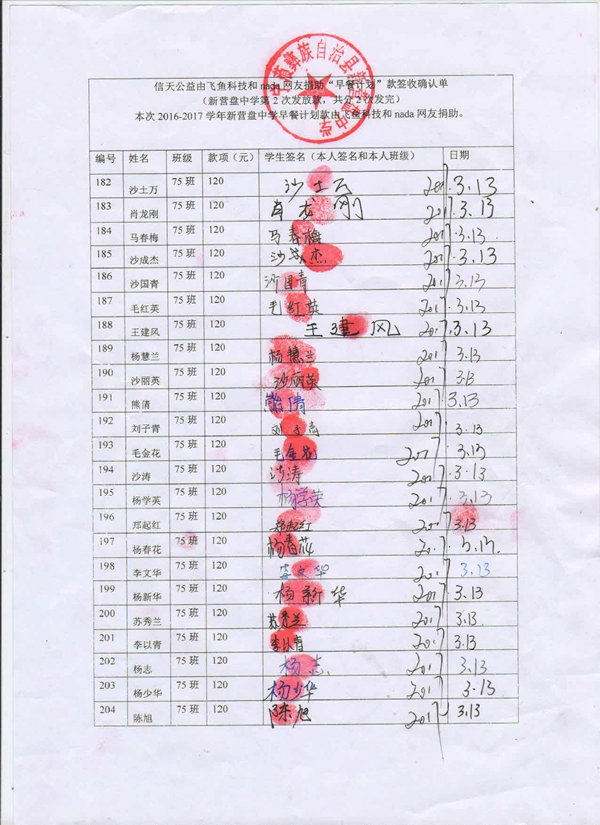 信天公益由飞鱼科技和 nada 网友捐助“早餐计划”款签收确认单
（新营盘中学第 2 次发放款，共分 2 次发完）
本次 2016-2017 学年新营盘中学早餐计划款由飞鱼科技和 nada 网友捐助。
编号 姓名 班级 款项（元） 学生签名（本人签名和本人班级） 日期
182 沙土万 75 班 120 沙土万 2017.3.13
183 肖龙刚 75 班 120 肖龙刚 2017.3.13
184 马春梅 75 班 120 马春梅 2017.3.13
185 沙成杰 75 班 120 沙成杰 2017.3.13
186 沙国青 75 班 120 沙国青 2017.3.13
187 毛红英 75 班 120 毛红英 2017.3.13
188 王建风 75 班 120 王建风 2017.3.13
189 杨慧兰 75 班 120 杨慧兰 2017 3.13
190 沙丽英 75 班 120 沙丽英 2017 3.13
191 熊倩 75 班 120 熊倩 2017.3.13
192 刘子青 75 班 120 2017.3.13
193 毛金花 75 班 120 毛金花 2017.3.13
194 沙涛 75 班 120 沙涛 2017.3.13
195 杨学英 75 班 120 杨学英 2017.3.13
196 郑起红 75 班 120 郑起红 2017 3.13
197 杨春花 75 班 120 杨春花 2017.3.13.
198 李文华 75 班 120 李文华 2017 3.13
199 杨新华 75 班 120 杨新华 2017.3.13
200 苏秀兰 75 班 120 苏秀兰 2017.3.13
201 李以青 75 班 120 李以青 2017.3.13
202 杨志 75 班 120 杨志 2017.3.13
203 杨少华 75 班 120 杨少华 2017.3.13
204 陈旭 75 班 120 陈旭 2017 3.13